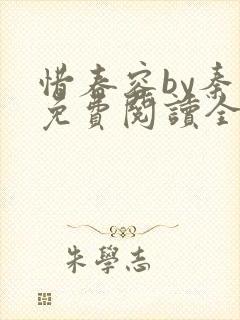 惜春容by秦
免費閱讀全
朱學志